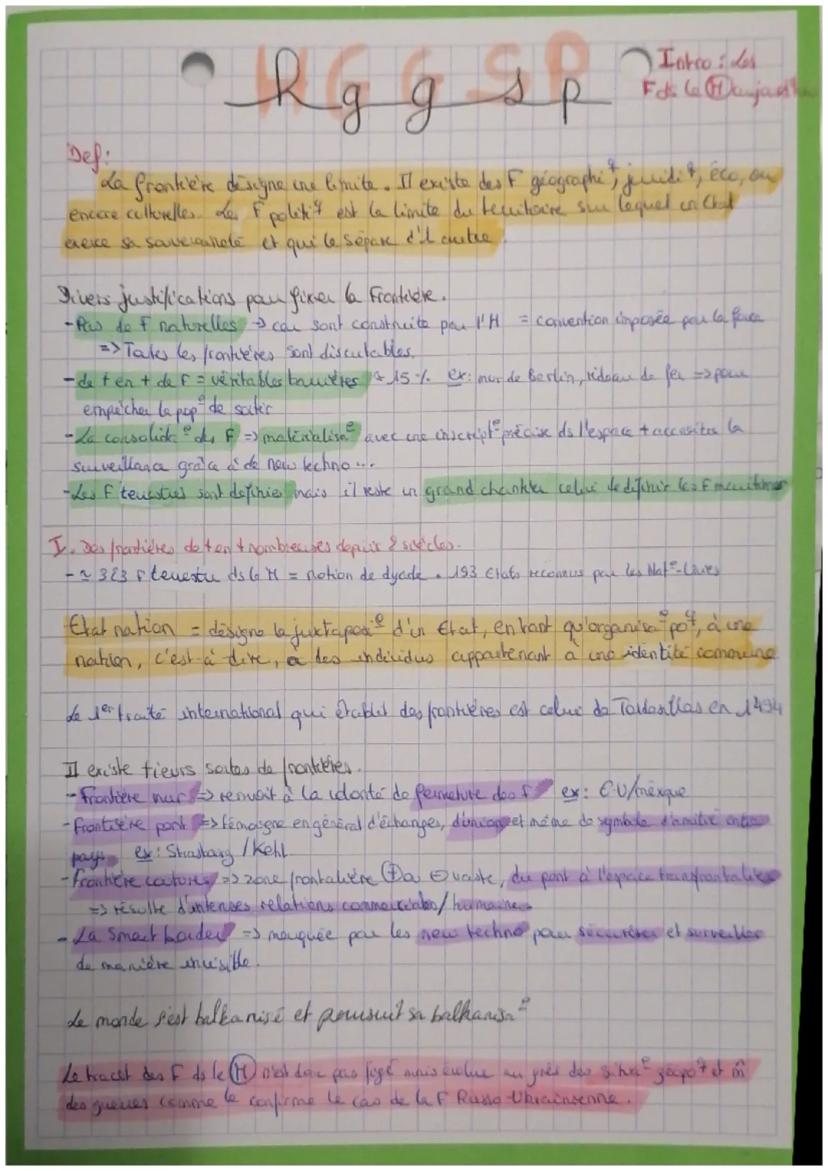 HGGSP
hggsp
Intro : les
F ds le (M) aujourd'hu
Def :
La frontière désigne une limite. Il existe des F géographiq, juridiq, éco, ou
encore culturelles. Les F politiq est la limite du territoire sur lequel un Etat
exerce sa souveraineté et qui le sépare d'1 autre.
Divers justifications pour fixer la Frontière.
- Pas de F naturelles → car sont construite par l'H = convention imposée par la force
=> Toutes les frontières sont discutables.
- de + en + de F = véritables barrières ≈ 15 % ex : mur de Berlin, rideau de fer => pour
empêcher la pop° de sortir
- La consolid° des F => matérialisa° avec une inscript° précise ds l'espace + accroître la
surveillance grâce à de new techno...
- Les F terrestres sont définies mais il reste un grand chantier celui de définir les F maritimes
I. Des frontières de + en + nombreuses depuis 2 siècles.
- ≈ 323 F terrestre ds le M = notion de dyade. 193 Etats reconnus par les Nat°-Unies
Etat nation = désigne la juxtaposi° d'un Etat, en tant qu'organisa° poq, à une
nation, c'est-à-dire, à des individus appartenant à une identité commune
Le 1er traité international qui établit des frontières est celui de Tordesillas en 1494
Il existe +ieurs sortes de frontières.
- Frontière mur => renvoit à la volonté de fermeture des F ex : E.U/mexique
- Frontière pont => témoigne en général d'échanges, d'union et même de symbole d'amitié entre
pays ex : Strasbourg / Kehl
- Frontière couture => zone frontalière ⊕ ou ⊖ vaste, du pont à l'espace transfrontaliers
=> résulte d'intenses relations commerciales/humaines
- La smart border => marquée par les new techno pour sécuriser et surveiller
de manière invisible.
Le monde s'est balkanisé et poursuit sa balkanisa°
Le tracé des F ds le (M) n'est donc pas figé mais évolue au grès des situa° géopoq et m̂
des guerres comme le confirme le cas de la F Russo-Ukrainienne.